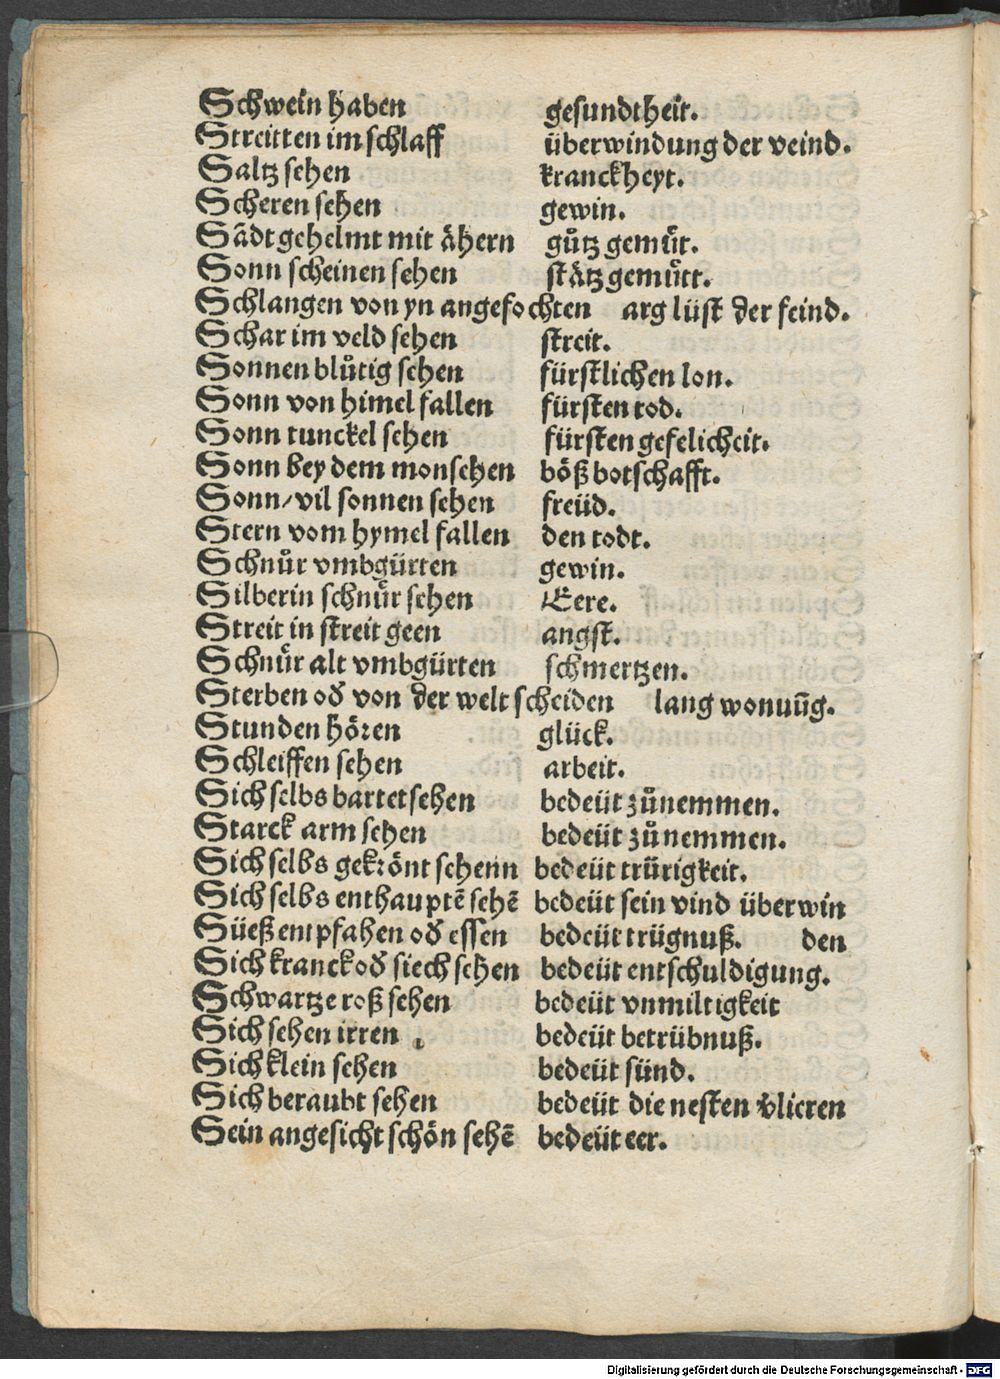 Schwein haben gesundtheit.
Streitten im schlaff überwindung der veind.
Saltz sehen kranckheyt.
Scheren sehen gewin.
Sādt gehelmt mit åhern gůtz gemüt.
Sonn scheinen sehen stätz gemütt.
Schlangen von yn angefochten arg lüst der feind.
Schar im veld sehen streit.
Sonnen blůtig sehen fürstlichen lon.
Sonn von himel fallen fürsten tod.
Sonn tunckel sehen fürsten gefelicheit.
Sonn bey dem mon sehen böß botschafft.
Sonn/vil sonnen sehen freüd.
Stern vom hymel fallen den todt.
Schnůr vmbgürten gewin.
Silberin schnůr sehen Eere.
Streit in streit geen angst.
Schnůr alt vmbgürten schmertzen.
Sterben od von der welt scheiden lang wonuūg.
Stunden hören glück.
Schleiffen sehen arbeit.
Sich selbs bartet sehen bedeüt zůnemmen.
Starck arm sehen bedeüt zůnemmen.
Sich selbs gekrönt sehenn bedeüt trürigkeit.
Sich selbs enthauptē sehē bedeüt sein vind überwin
Süeß empfahen od essen bedeüt trügnuß. den
Sich kranck od siech sehen bedeüt entschuldigung.
Schwartze roß sehen bedeüt vnmiltigkeit
Sich sehen irren bedeüt betrübnuß.
Sich klein sehen bedeüt sünd.
Sich beraubt sehen bedeüt die nesten v̄lieren
Sein angesicht schön sehē bedeüt eer.
Digitalisierung gefördert durch die Deutsche Forschungsgemeinschaft - DFG